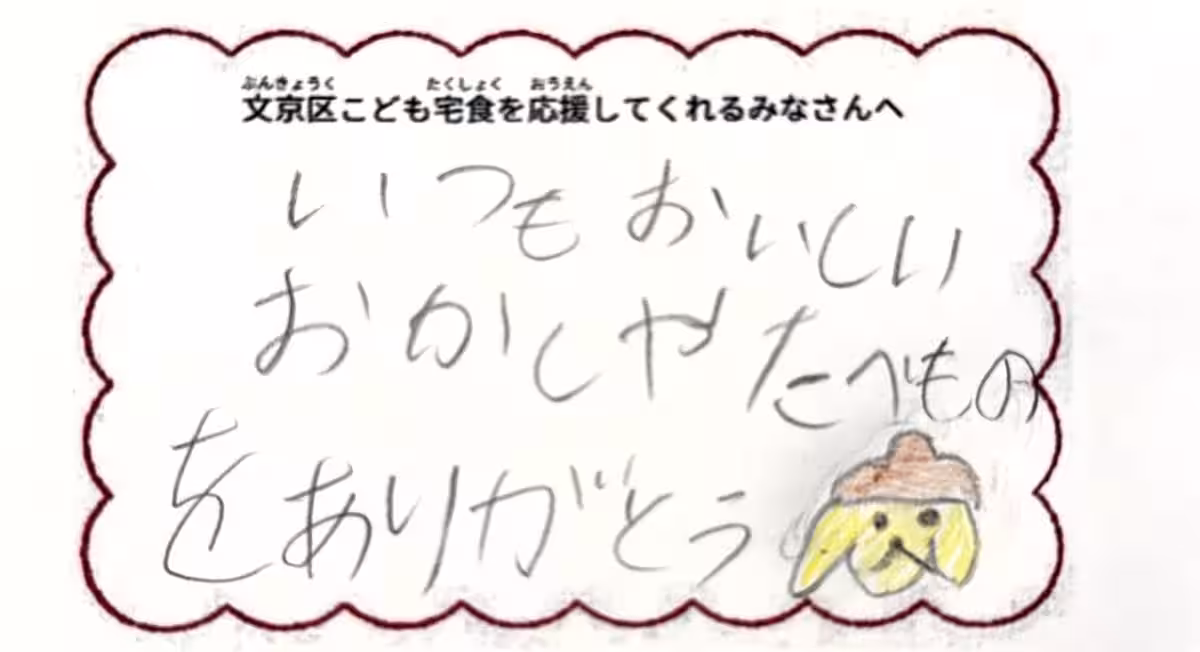 ぶんきょうく たくしょく おうえん
文京区こども宅食を応援してくれるみなさんへ
いつもおいしい
おかしやたべもの
をありがとう